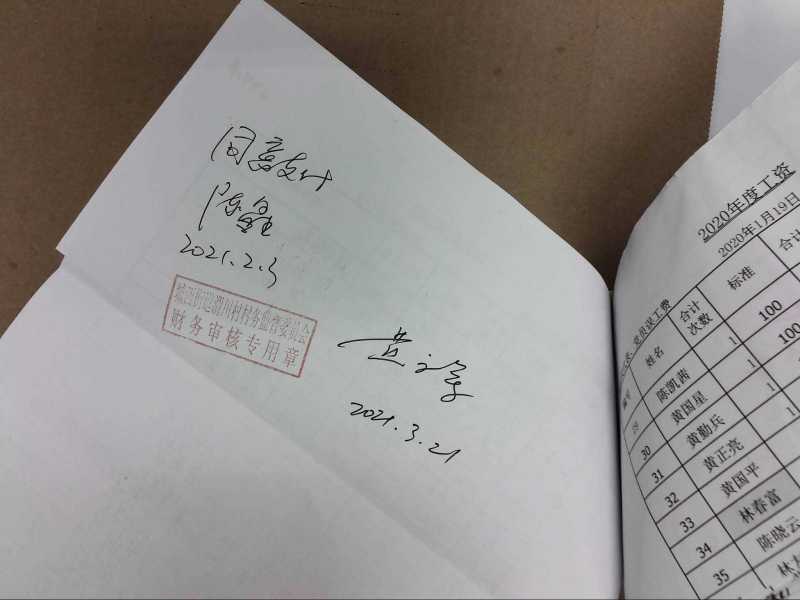 同意支付
2021.2.3
村村务监督委员会
财务审核专用章
2021.3.21
2020年度工资
2020年1月19日
党员误工费
编号 姓名 合计次数 标准 合计
29 陈凯茜 1 100
30 黄国星 1 100
31 黄勤兵 1
32 黄正亮
33 黄国平
34 林春富
35 陈晓云
林